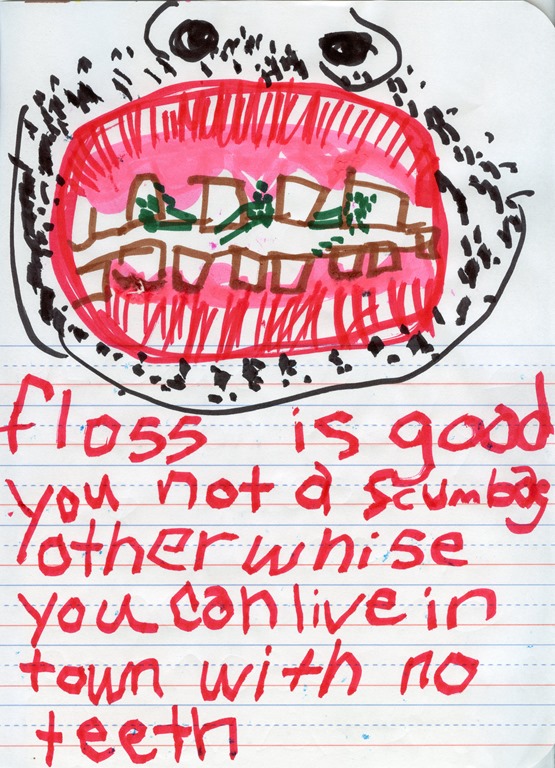 floss is good
you not a scumbag
otherwhise
you can live in
town with no
teeth